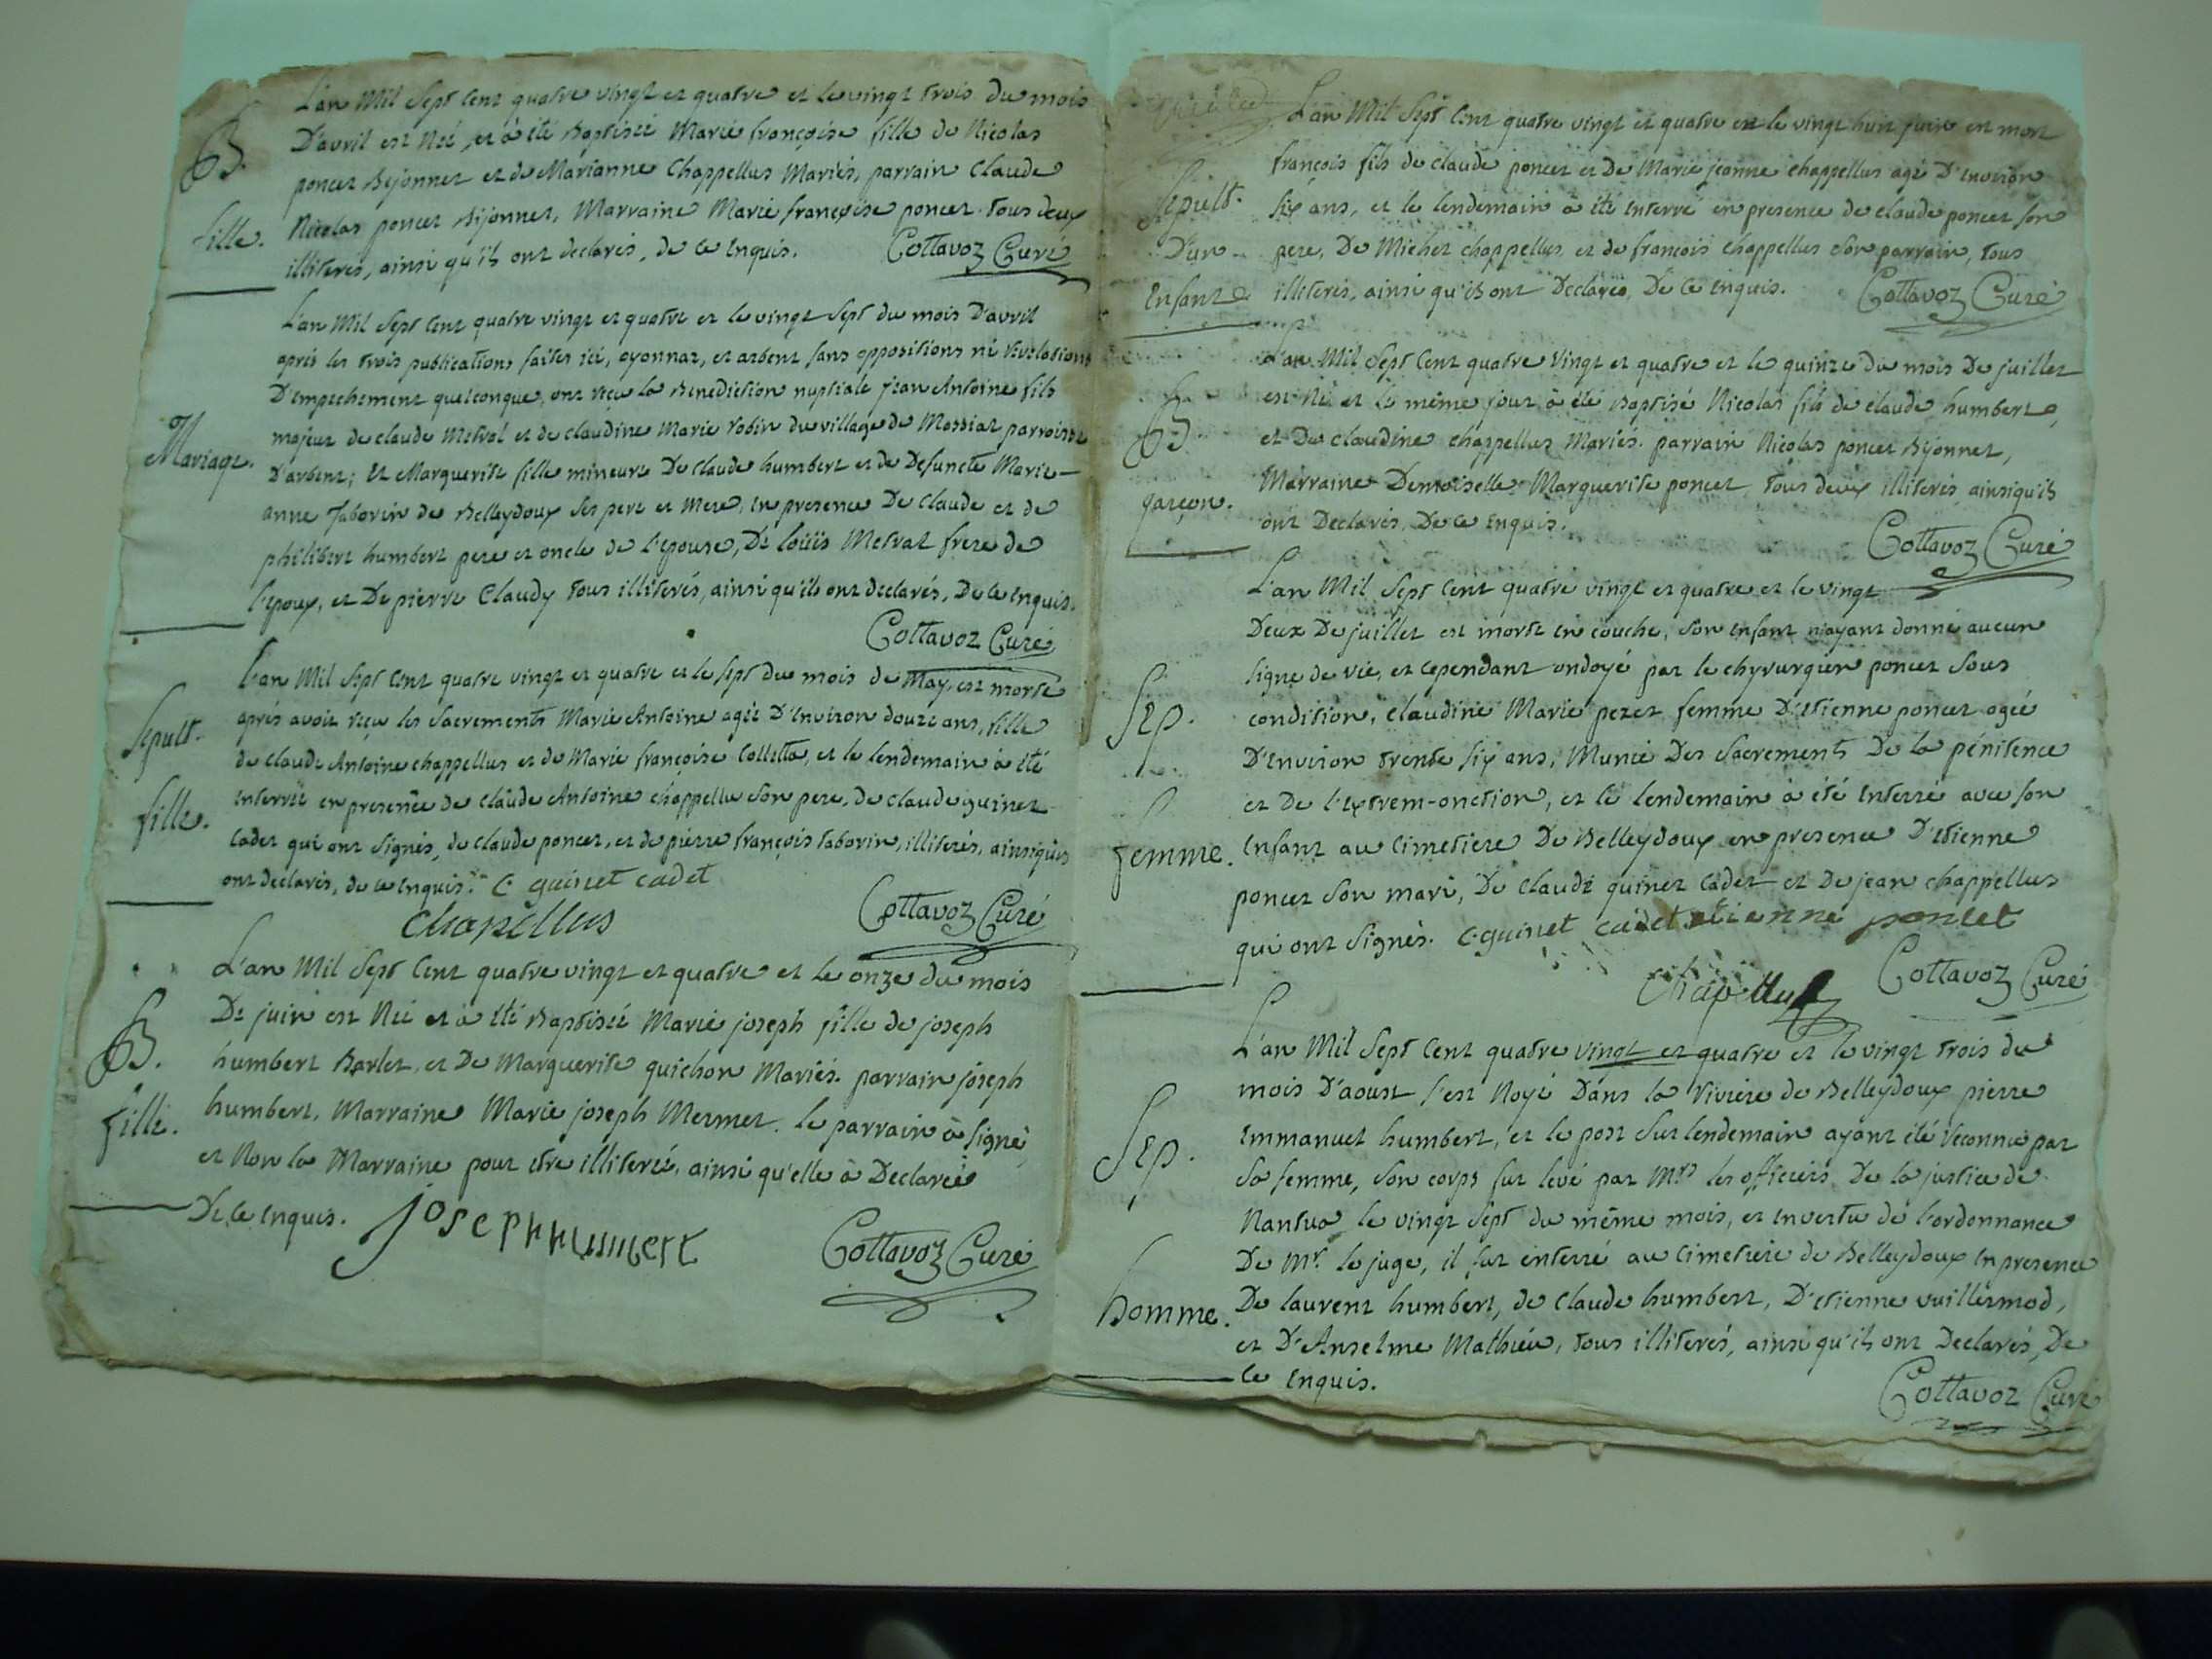 L'an Mil Sept Cent quatre vingt et quatre et le vingt trois du mois
B.
D'avril est Née, et à été Baptisée Marie françoise fille de Nicolas
poncet Bijonnet et de Marianne Chappellus Mariés, parrain Claude
fille.
Nicolas poncet Bijonnet, Marraine Marie françoise poncet. tous deux
illiterés, ainsi qu'ils ont declarés, de ce Enquis. Cottavoz Curé
L'an Mil Sept Cent quatre vingt et quatre et le vingt Sept du mois D'avril
après les trois publications faites ici, oyonnaz, et arbent sans oppositions ni revelations
D'empechement quelconque, ont reçu la Benediction nuptiale jean Antoine fils
majeur de claude Metral et de claudine Marie robin du village de Massiat parroisse
Mariage.
D'arbent; Et Marguerite fille mineure De claude humbert et de Defuncte Marie-
anne Taborin de Belleydoux ses pere et Mere, en presence De claude et de
philibert humbert pere et oncle de l'epouse, De loüis Metrat frere de
l'epoux, et De pierre Claudy tous illiterés, ainsi qu'ils ont declarés, De ce Enquis.
Cottavoz Curé
L'an Mil Sept Cent quatre vingt et quatre et le sept du mois de May, est morte
Sepult.
après avoir reçu les Sacrements Marie Antoine agée D'environ douze ans, fille
de claude Antoine chappellus et de Marie françoise Colletta, et le lendemain à été
fille.
Enterrée en presence de claude Antoine chappellu son pere, de claude guinet
Cadet qui ont Signés, de claude poncet, et de pierre françois taborin, illiterés, ainsi qu'ils
ont declarés, de ce Enquis. C guinet cadet
chapellus Cottavoz Curé
L'an Mil Sept Cent quatre vingt et quatre et le onze du mois
B.
De juin est Née et à été Baptisée Marie joseph fille de joseph
humbert Barlet, et De Marguerite guichon Mariés. parrain joseph
fille.
humbert, Marraine Marie joseph Mermet. le parrain à signé,
et Non la Marraine pour etre illiterée, ainsi qu'elle à Declarée
De ce Enquis. joseph humbert Cottavoz Curé
L'an Mil Sept Cent quatre vingt et quatre et le vingt huit juin est mort
françois fils de claude poncet et De Marie jeanne chappellus agé D'environ
Sepult.
six ans, et le lendemain à été Enterré en presence de claude poncet son
D'un
pere, De Michel chappellus, et de françois chappellus son parrain, tous
Enfant
illiterés, ainsi qu'ils ont Declarés, De ce Enquis. Cottavoz Curé
L'an Mil Sept Cent quatre Vingt et quatre et le quinze du mois De juillet
est Né et le même jour à été Baptisé Nicolas fils de claude humbert,
B.
et De claudine chappellus Mariés. parrain Nicolas poncet Bijonnet,
Marraine Demoiselle Marguerite poncet, tous deux illiterés, ainsi qu'ils
garçon.
ont Declarés, De ce Enquis.
Cottavoz Curé
L'an Mil Sept Cent quatre vingt et quatre et le vingt
Deux De juillet est morte en couche, son Enfant n'ayant donné aucun
signe de vie, et cependant ondoyé par le chyrurgien poncet sous
Sep.
condition, claudine Marie perer femme D'etienne poncet agée
D'environ trente six ans, Munie Des Sacrements De la pénitence
et De l'extrem-onction, et le lendemain à été Enterré avec son
femme.
Enfant au Cimetiere De Belleydoux en presence D'etienne
poncet son mari, De claude guinet Cadet et De jean chappellus
qui ont Signés. C. guinet cadet etienne poncet
Chapellus Cottavoz Curé
L'an Mil Sept Cent quatre vingt et quatre et le vingt trois du
mois D'aoust s'est Noyé Dans la riviere de Belleydoux pierre
Sep.
Emmanuel humbert, et le post Surlendemain ayant été reconnu par
sa femme, son corps fut levé par Mrs les officiers De la justice de
Nantua le vingt Sept du même mois, et en vertu de l'ordonnance
De Mr. le juge, il fut enterré au Cimetiere de Belleydoux en presence
homme.
De laurent humbert, de claude humbert, D'etienne vuillermod,
et D'Anselme Mathieu, tous illiterés, ainsi qu'ils ont Declarés, De
Ce Enquis.
Cottavoz Curé